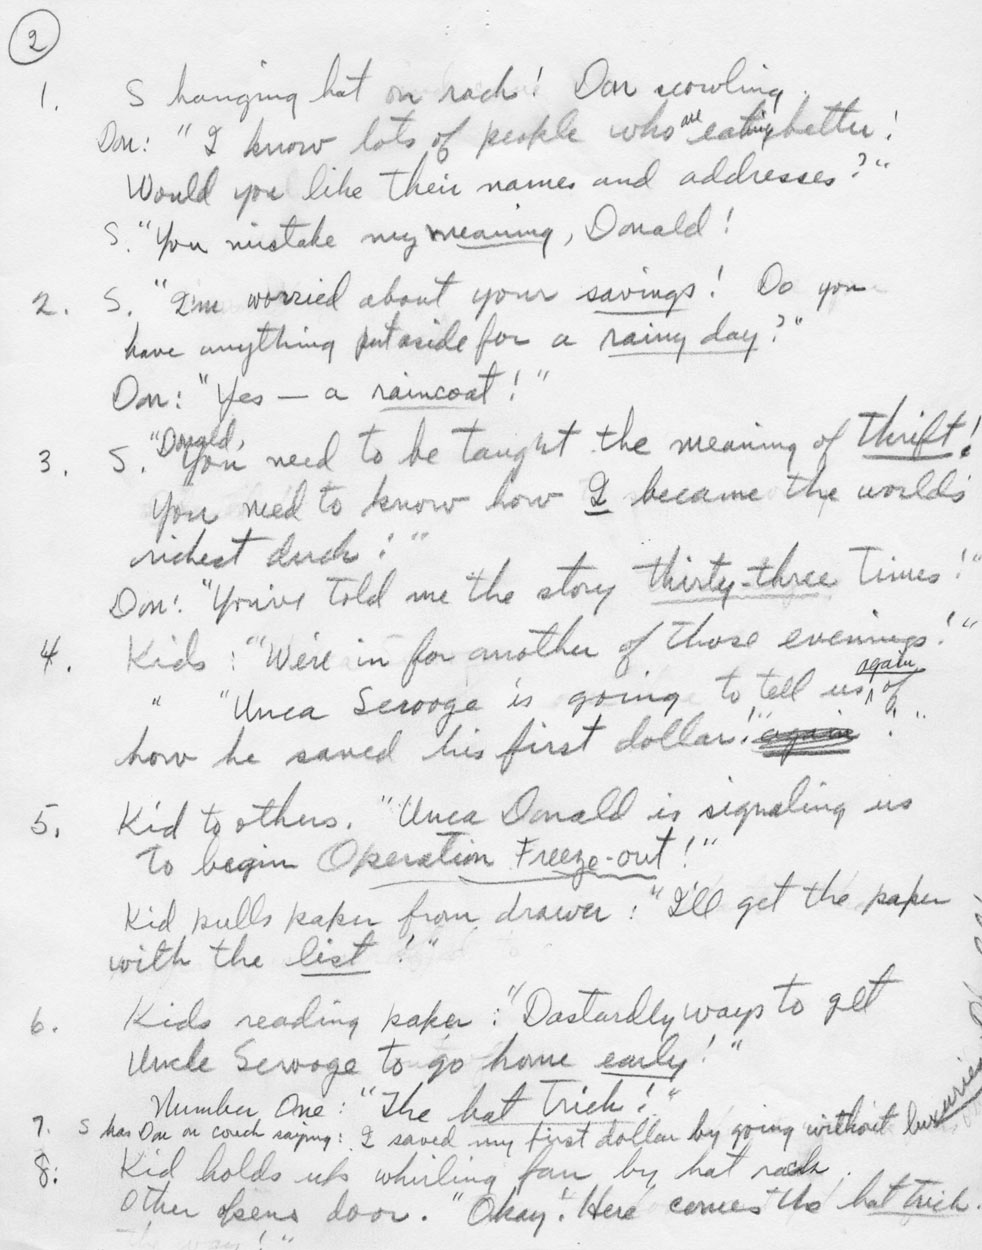 2
1. S hanging hat on rack! Don scowling.
Don: "I know lots of people who are eating better!
Would you like their names and addresses?"
S. "You mistake my meaning, Donald!
2. S. "I'm worried about your savings! Do you
have anything put aside for a rainy day?"
Don: "Yes — a raincoat!"
3. S. "Donald, You need to be taught the meaning of thrift!
You need to know how I became the world's
richest duck!"
Don: "You've told me the story thirty-three times!"
4. Kids: "We're in for another of those evenings!"
" "Unca Scrooge is going to tell us again of
how he saved his first dollar!"
5. Kid to others. "Unca Donald is signaling us
to begin Operation Freeze-out!"
Kid pulls paper from drawer: "I'll get the paper
with the list!"
6. Kids reading paper: "Dastardly ways to get
Uncle Scrooge to go home early!"
Number One: "The hat trick!"
7. S has Don on couch saying: I saved my first dollar by going without luxuries
8: Kid holds up whirling fan by hat rack.
Other opens door. "Okay! Here comes the hat trick.
the way!"